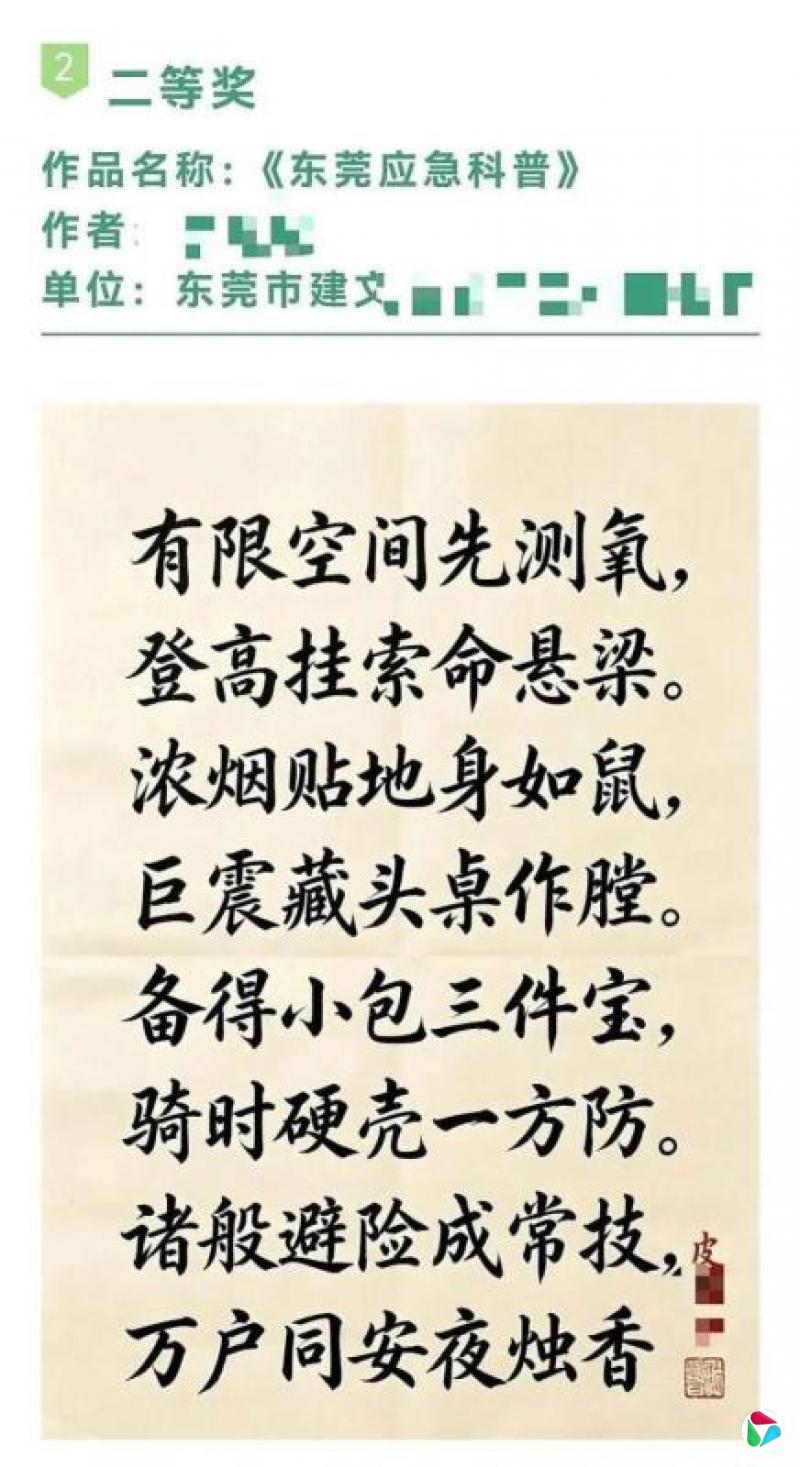 2
二等奖
作品名称：《东莞应急科普》
作者：
单位：东莞市建文
有限空间先测氧，
登高挂索命悬梁。
浓烟贴地身如鼠，
巨震藏头桌作膛。
备得小包三件宝，
骑时硬壳一方防。
诸般避险成常技，
万户同安夜烛香
皮